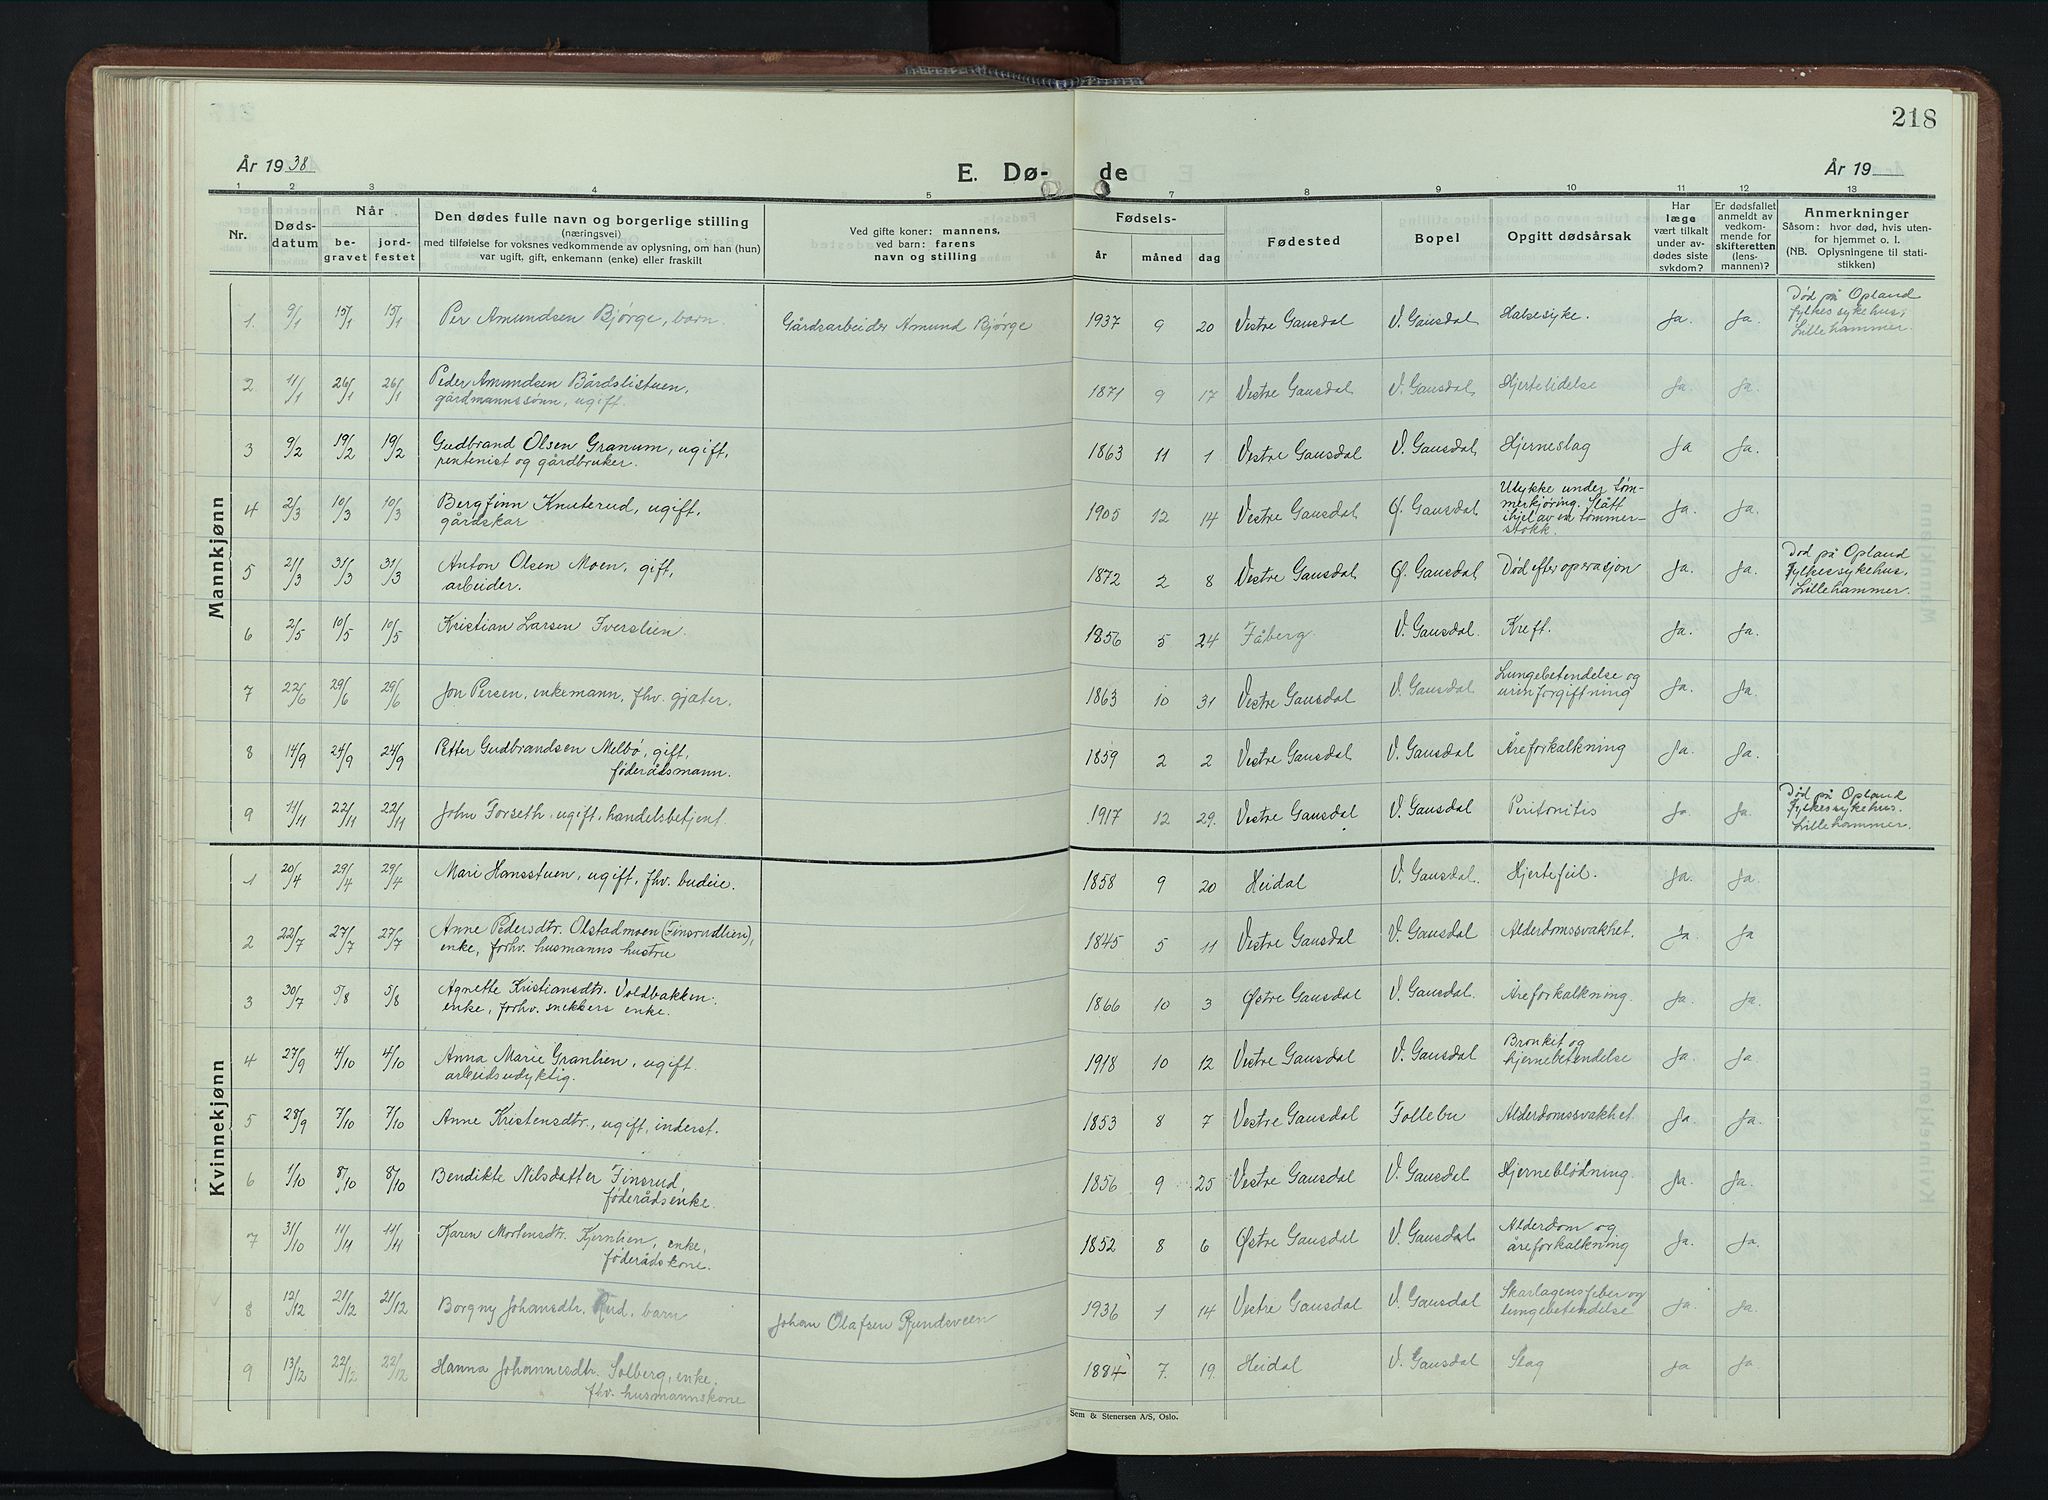 218
År 1938
E. Dø-
de
År 19
1 2 3 4 5 7 8 9 10 11 12 13
Nr.
Døds-
datum
Når
be-
gravet
jord-
festet
Den dødes fulle navn og borgerlige stilling
(næringsvei)
med tilføielse for voksnes vedkommende av oplysning, om han (hun)
var ugift, gift, enkemann (enke) eller fraskilt
Ved gifte koner: mannens,
ved barn: farens
navn og stilling
Fødsels-
år
måned
dag
Fødested
Bopel
Opgitt dødsårsak
Har
læge
vært tilkalt
under av-
dødes siste
sykdom?
Er dødsfallet
anmeldt av
vedkom-
mende for
skifteretten
(lens-
mannen)?
Anmerkninger
Såsom: hvor død, hvis uten-
for hjemmet o. l.
(NB. Oplysningene til stati-
stikken)
Mannkjønn
1. 9/1 15/1 15/1 Per Amundsen Bjørge, barn Gårdsarbeider Amund Bjørge 1937 9 20 Vestre Gausdal V. Gausdal Halsesyke. Ja. Ja. Død på Opland
fylkessykehus,
Lillehammer.
2 11/1 26/1 26/1 Peder Amundsen Bårdslistuen,
gårdmannssønn, ugift. 1871 9 17 Vestre Gausdal V. Gausdal Hjertelidelse Ja. Ja.
3 9/2 19/2 19/2 Gudbrand Olsen Granum, ugift,
rentenist og gårdbruker. 1863 11 1 Vestre Gausdal V. Gausdal Hjerneslag Ja Ja.
4 2/3 10/3 10/3 Bergfinn Knuterud, ugift,
gårdskar 1905 12 14 Vestre Gausdal Ø. Gausdal Ulykke under tøm-
merkjøring. Slått
ihjel av en tømmer-
stokk. Ja. Ja.
5 21/3 31/3 31/3 Anton Olsen Moen, gift,
arbeider. 1872 2 8 Vestre Gausdal Ø. Gausdal Død efter operasjon Ja. Ja. Død på Opland
Fylkessykehus,
Lillehammer.
6 2/5 10/5 10/5 Kristian Larsen Iverslien. 1856 5 24 Fåberg. V. Gausdal. Kreft. Ja. Ja.
7 22/6 29/6 29/6 Jon Persen, enkemann, fhv. gjæter. 1863 10 31 Vestre Gausdal V. Gausdal Lungebetendelse og
urinforgiftning Ja. Ja.
8 14/9 24/9 24/9 Petter Gudbrandsen Melbø, gift,
føderådsmann. 1859 2 2 Vestre Gausdal V. Gausdal Åreforkalkning Ja. Ja.
9 11/11 22/11 22/11 John Forseth, ugift, handelsbetjent 1917 12 29. Vestre Gausdal V. Gausdal Peritonitis Ja Ja. Død på Opland
Fylkessykehus.
Lillehammer.
Kvinnekjønn
1 20/4 29/4 29/4 Mari Hansstuen, ugift, fhv. budeie. 1858 9 20 Heidal V. Gausdal. Hjertefeil. Ja. Ja.
2 22/7 27/7 27/7 Anne Pedersdtr. Olstadmoen (Finsrudlien),
enke, forhv. husmanns hustru 1845 5 11 Vestre Gausdal V. Gausdal Alderdomssvakhet. Ja. Ja
3 30/7 5/8 5/8 Agnette Kristiansdtr. Voldbakken.
enke, forhv. snekkers enke. 1866 10 3 Østre Gausdal V. Gausdal. Åreforkalkning. Ja. Ja.
4 27/9 4/10 4/10 Anna Marie Granlien, ugift.
arbeidsudyktig. 1918 10 12 Vestre Gausdal V. Gausdal Bronkit og
hjernebetendelse Ja. Ja.
5 28/9 7/10 7/10 Anne Kristensdtr., ugift, inderst. 1853 8 7 Vestre Gausdal Follebu Alderdomssvakhet Ja Ja.
6 1/10 8/10 8/10 Bendikte Nilsdatter Finsrud,
føderådsenke. 1856 9 25 Vestre Gausdal V. Gausdal Hjerneblødning. Ja. Ja.
7 31/10 11/11 11/11 Karen Mortensdtr. Kjernlien, enke,
føderådskone. 1852 8 6 Østre Gausdal V. Gausdal Alderdom og
åreforkalkning Ja. Ja.
8 12/12 21/12 21/12 Borgny Johansdtr. Rud, barn Johan Olafsen Rundsveen 1936 1 14 Vestre Gausdal V. Gausdal Skarlagensfeber og
lungebetendelse Ja. Ja.
9 13/12 22/12 22/12 Hanna Johannesdtr. Solberg, enke.
fhv. husmannskone 1884 7. 19. Heidal V. Gausdal Slag Ja Ja.
Sem & Stenersen A/S, Oslo.